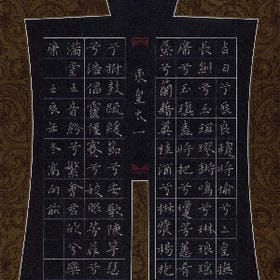 吉日兮辰良穆將愉兮上皇撫
長劍兮玉珥璆鏘鳴兮琳琅瑤
席兮玉瑱盍將把兮瓊芳蕙肴
蒸兮蘭藉奠桂酒兮椒漿揚枹
東皇太一
兮拊鼓疏緩節兮安歌陳竽瑟
兮浩倡靈偃蹇兮姣服芳菲菲兮
滿堂五音紛兮繁會君欣欣兮樂
康 壬辰年冬高向前